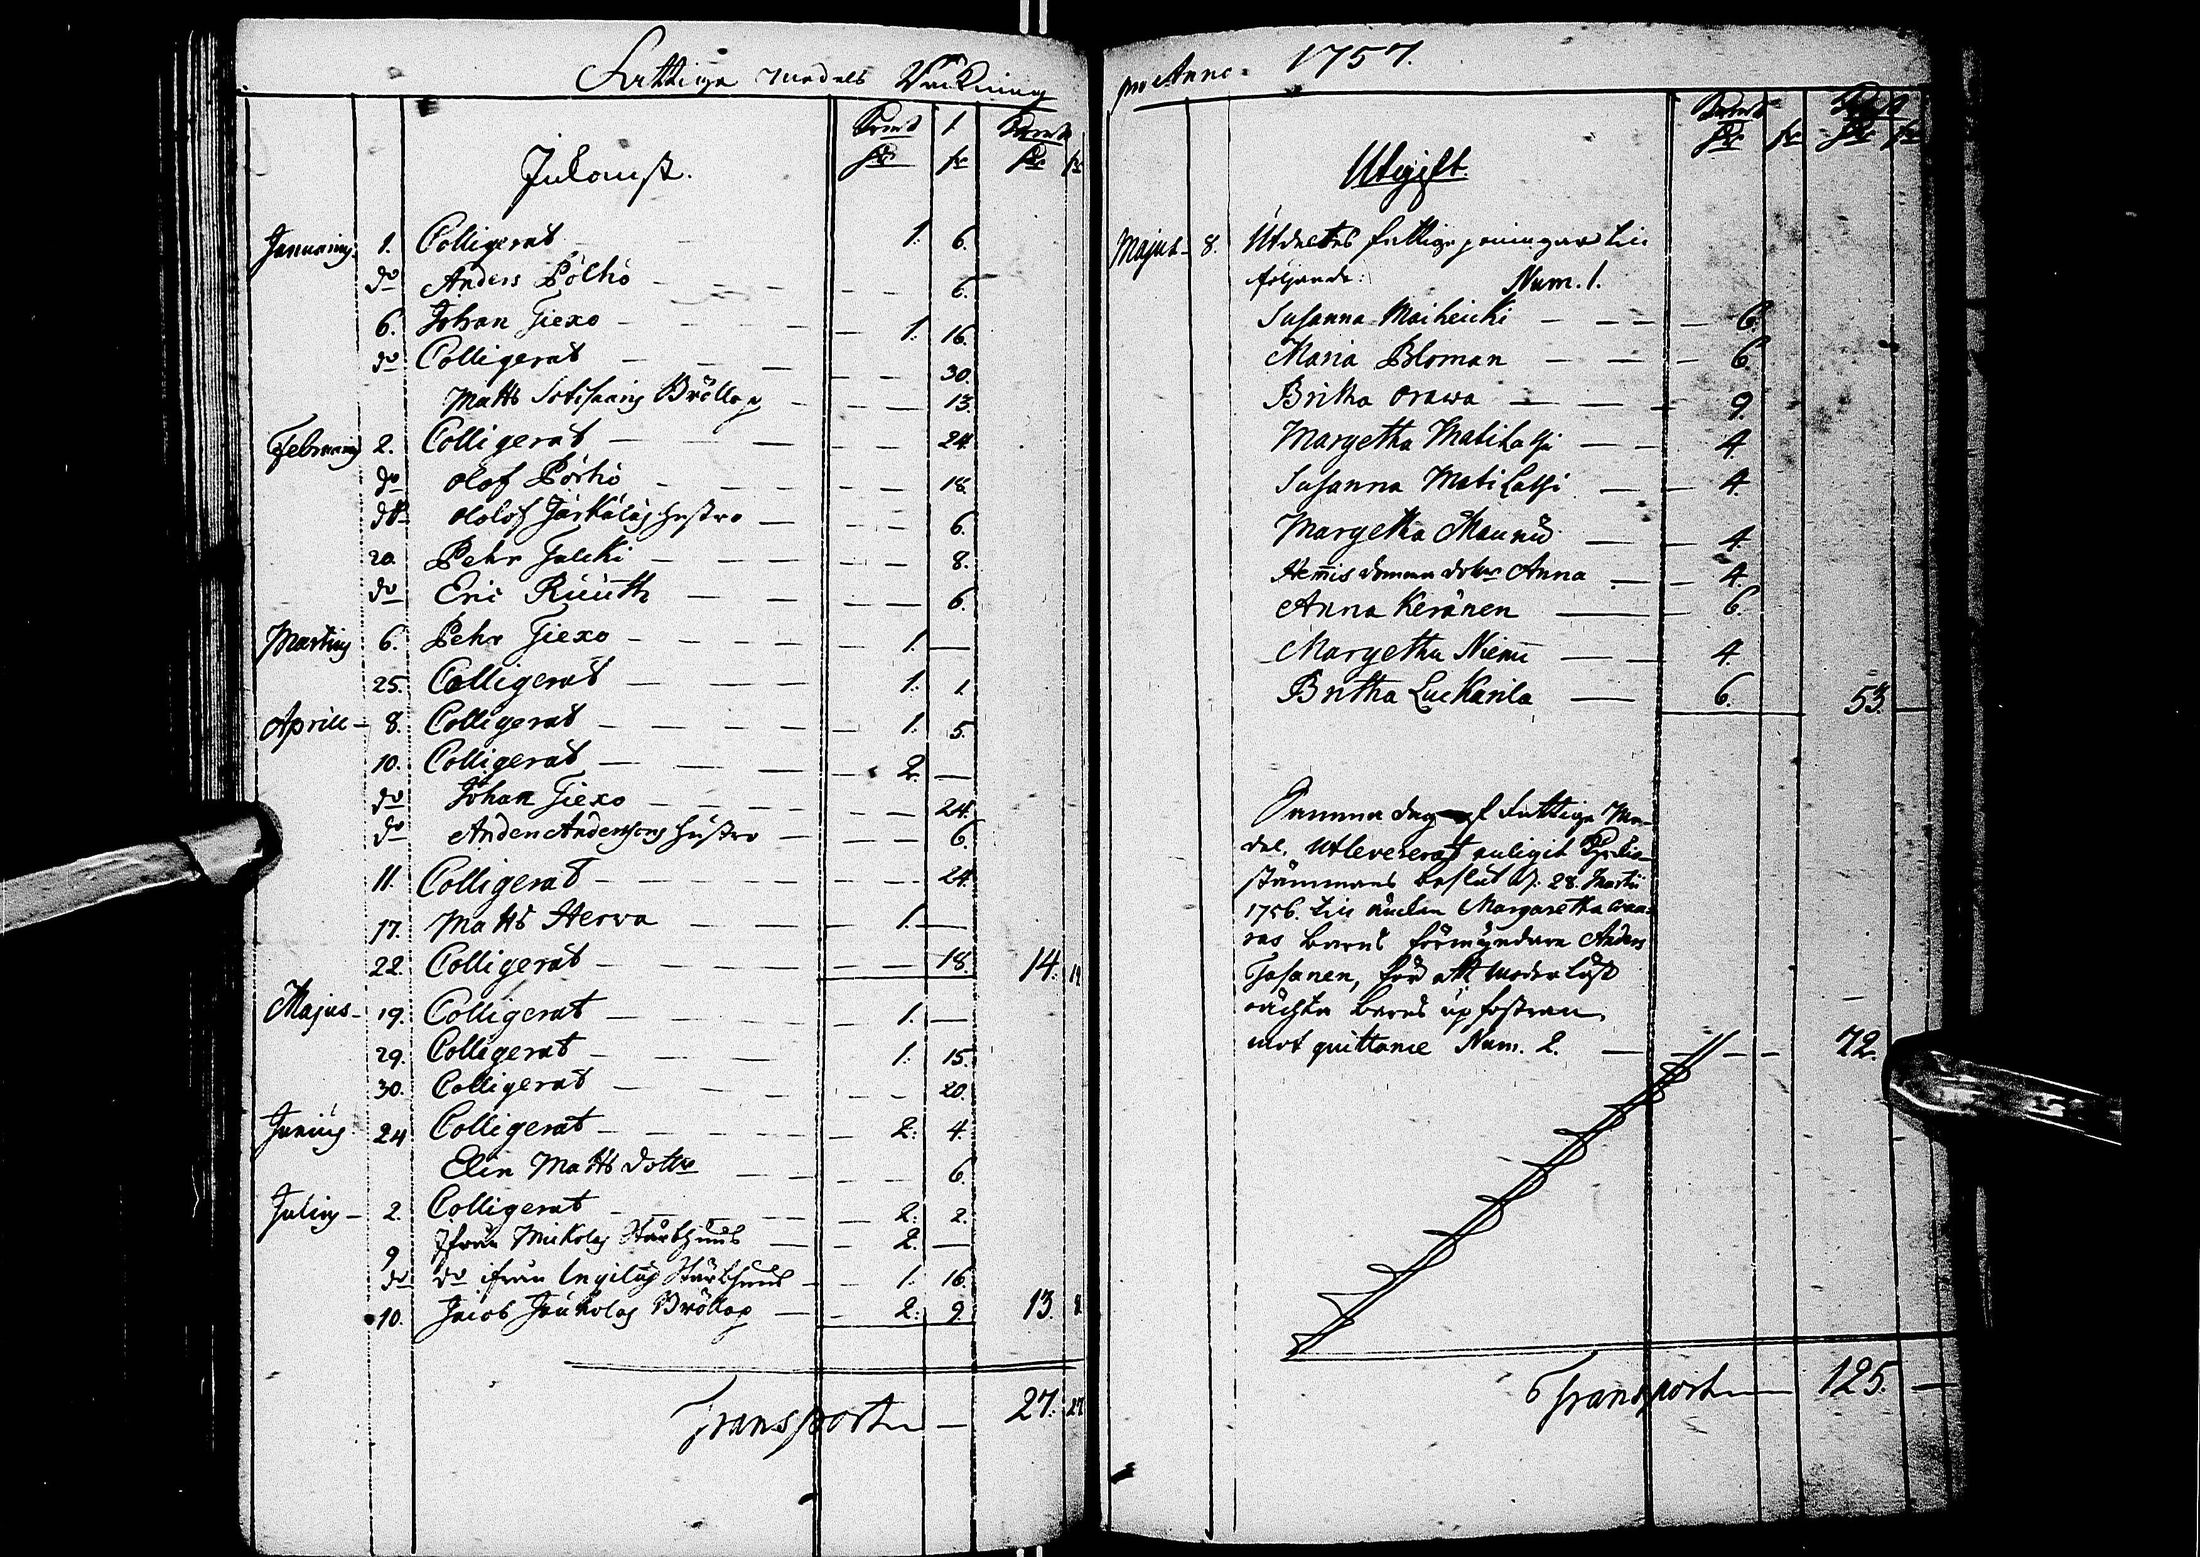 Fattige Medels Räkning
Inkomst.
Januarius 1. Colligerat 1. 6.
do Anders Pölhö 6.
6. Johan Tiexo 1. 16.
do Colligerat 30.
Matts Bröllop 13.
Februarius 2. Colligerat 24.
do Olof Pörhö 18.
do Olof hustro 6.
20. Pehr Talcki 8.
do Eric Ruuth 6.
Martius 6. Pehr Tiexo 1. —
25. Colligerat 1. 1.
Aprill 8. Colligerat 1. 5.
10. Colligerat 2. —
do Johan Tiexo 24.
do Anders Anderssons hustro 6.
11. Colligerat 24.
17. Matts Herva 1. —
22. Colligerat 18. 14. 19
Majus 19. Colligerat 1. —
29. Colligerat 1. 15.
30. Colligerat 20.
Junius 24 Colligerat 2. 4.
Elin Matts dotter 6.
Julius 2. Colligerat 2. 2.
9 Ifrån Mickolas Stärbhuus 2. —
do do ifrån Ingilas Stärbhuus 1. 16.
10. Jacob Jaukolas Bröllop 2. 9. 13. 8.
Transport 27. 27
pro Anno 1757.
Utgift.
Majus 8. Utdeltes fattige peningar till
följande: Num. 1.
Susanna Maiheicki 6.
Maria Bloman 6.
Britha Orawa 9.
Margetha Matilassi 4.
Susanna Matilassi 4.
Margetha Maunu 4.
Anna 4.
Anna Keränen 6.
Margetha Niemi 4.
Britha Luckarila 6. 53. —
Samma dag af Fattige Me-
del. Utlevererat enligit Sockne
stämmans beslut d. 28. Martii
1756. till Margaretha
ras barns förmyndare Anders
Tasanen, för ett moderlöst
barns upfostran
mot quittance Num. 2. 72.
Transport 125. —